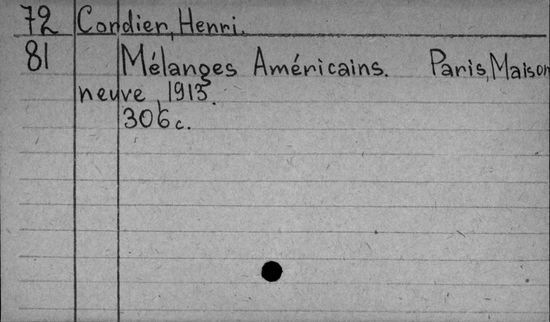 72 Cordier, Henri.
81 Mélanges Américains. Paris, Maison
neuve, 1913.
306 c.